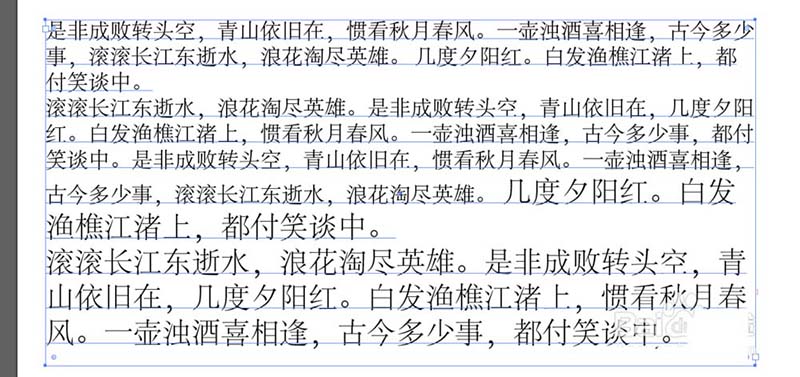 是非成败转头空，青山依旧在，惯看秋月春风。一壶浊酒喜相逢，古今多少
事，滚滚长江东逝水，浪花淘尽英雄。 几度夕阳红。白发渔樵江渚上，都
付笑谈中。
滚滚长江东逝水，浪花淘尽英雄。是非成败转头空，青山依旧在，几度夕阳
红。白发渔樵江渚上，惯看秋月春风。一壶浊酒喜相逢，古今多少事，都付
笑谈中。是非成败转头空，青山依旧在，惯看秋月春风。一壶浊酒喜相逢，
古今多少事，滚滚长江东逝水，浪花淘尽英雄。 几度夕阳红。白发
渔樵江渚上，都付笑谈中。
滚滚长江东逝水，浪花淘尽英雄。是非成败转头空，青
山依旧在，几度夕阳红。白发渔樵江渚上，惯看秋月春
风。一壶浊酒喜相逢，古今多少事，都付笑谈中。